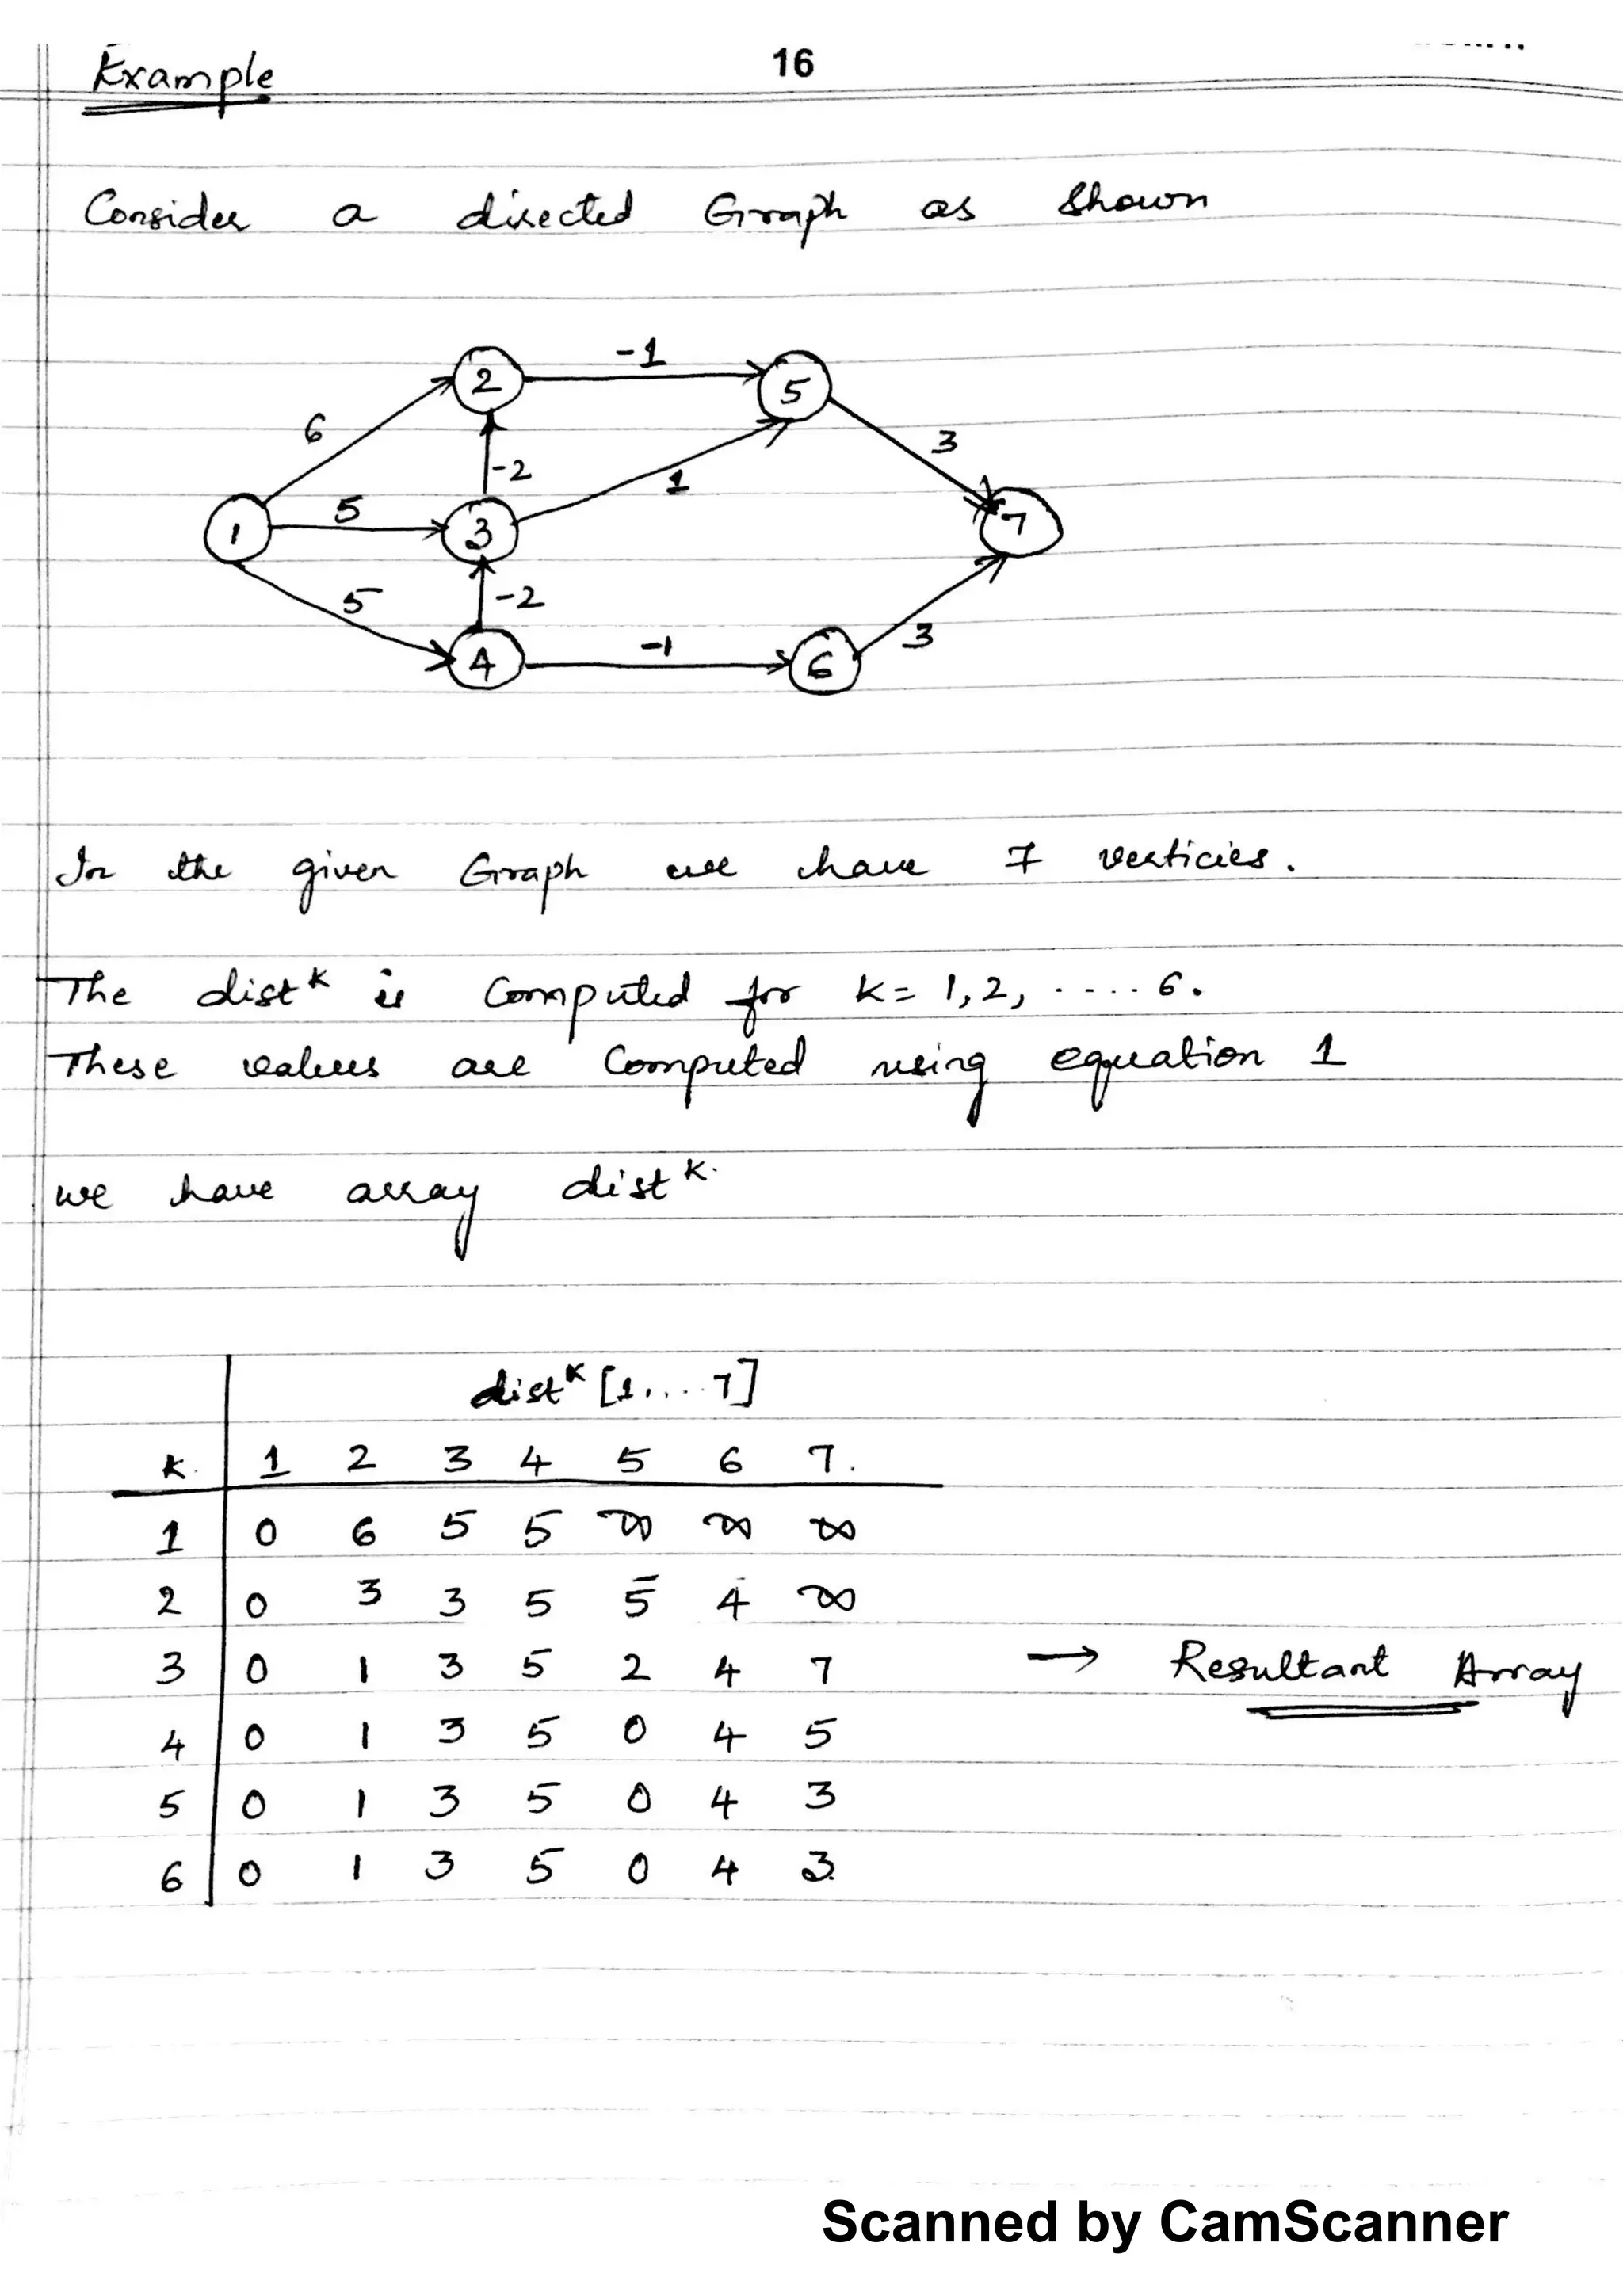 Example
16
Consider a directed Graph as shown
-1
2
5
6
-2
3
1
5
1
3
7
5
-2
3
-1
4
6
In the given Graph we have 7 verticies.
The dist^k is computed for k= 1,2, ....6.
These values are computed using equation 1
we have array dist^k.
dist^k [1.... 7]
k. 1 2 3 4 5 6 7.
1 0 6 5 5 ∞ ∞ ∞
2 0 3 3 5 5 4 ∞
3 0 1 3 5 2 4 7 → Resultant Array
4 0 1 3 5 0 4 5
5 0 1 3 5 0 4 3
6 0 1 3 5 0 4 3.
Scanned by CamScanner